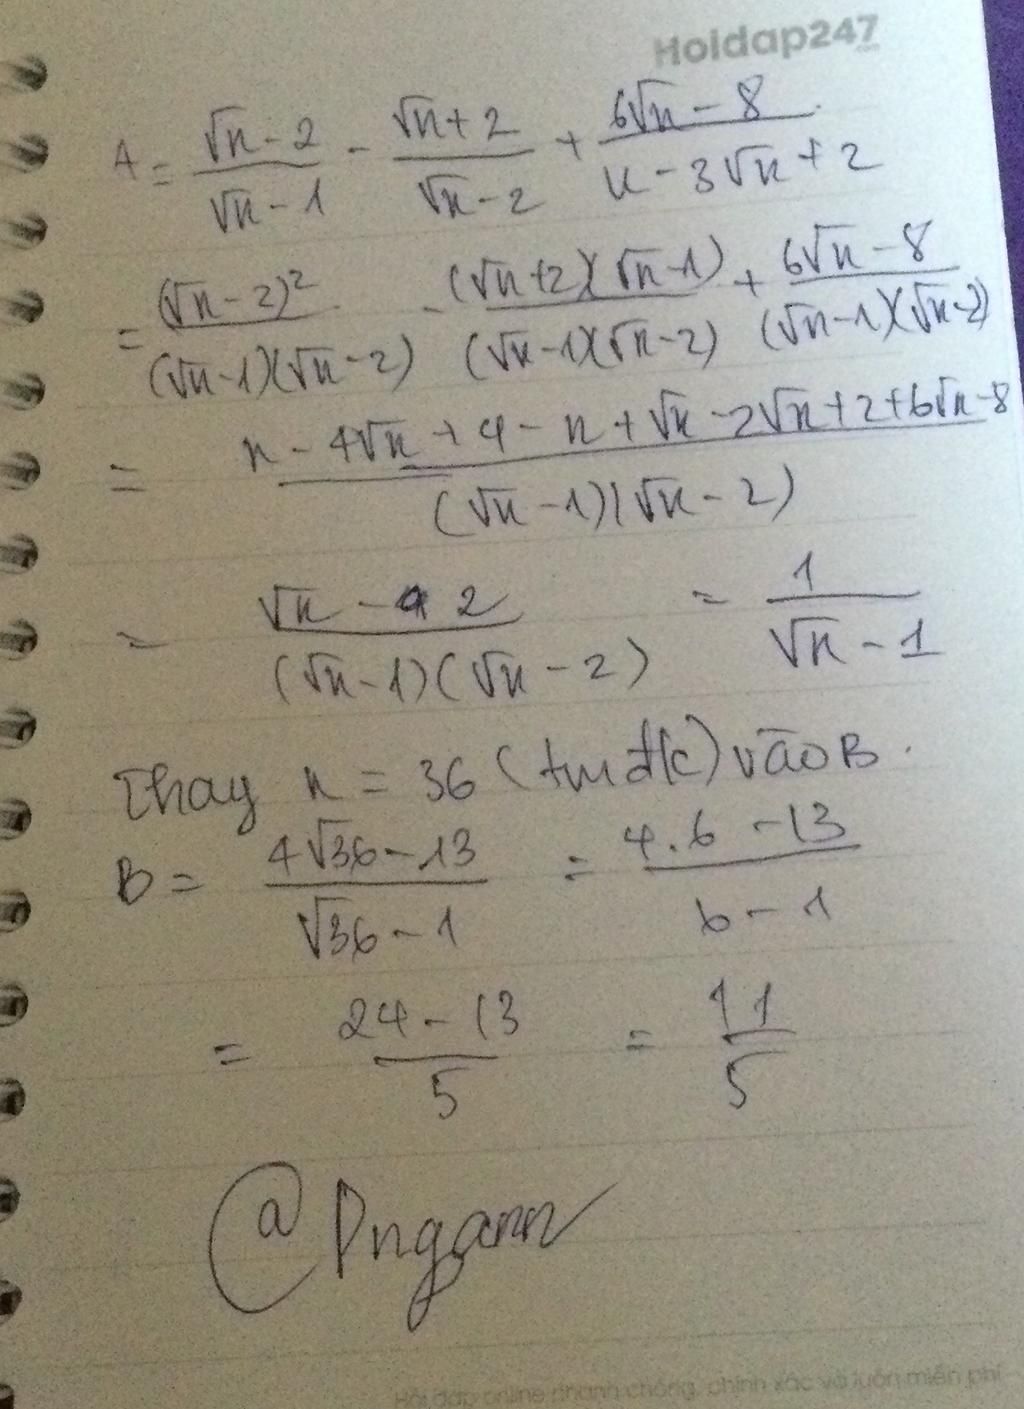 Hoidap247
.com
A = (√x - 2)/(√x - 1) - (√x + 2)/(√x - 2) + (6√x - 8)/(x - 3√x + 2)
= (√x - 2)²/((√x - 1)(√x - 2)) - ((√x + 2)(√x - 1))/((√x - 1)(√x - 2)) + (6√x - 8)/((√x - 1)(√x - 2))
= (x - 4√x + 4 - x + √x - 2√x + 2 + 6√x - 8)/((√x - 1)(√x - 2))
= (√x - 2)/((√x - 1)(√x - 2)) = 1/(√x - 1)
Thay x = 36 (tmđk) vào B.
B = (4√36 - 13)/(√36 - 1) = (4.6 - 13)/(6 - 1)
= (24 - 13)/5 = 11/5
@Pngann
Hỏi đáp online nhanh chóng, chính xác và luôn miễn phí